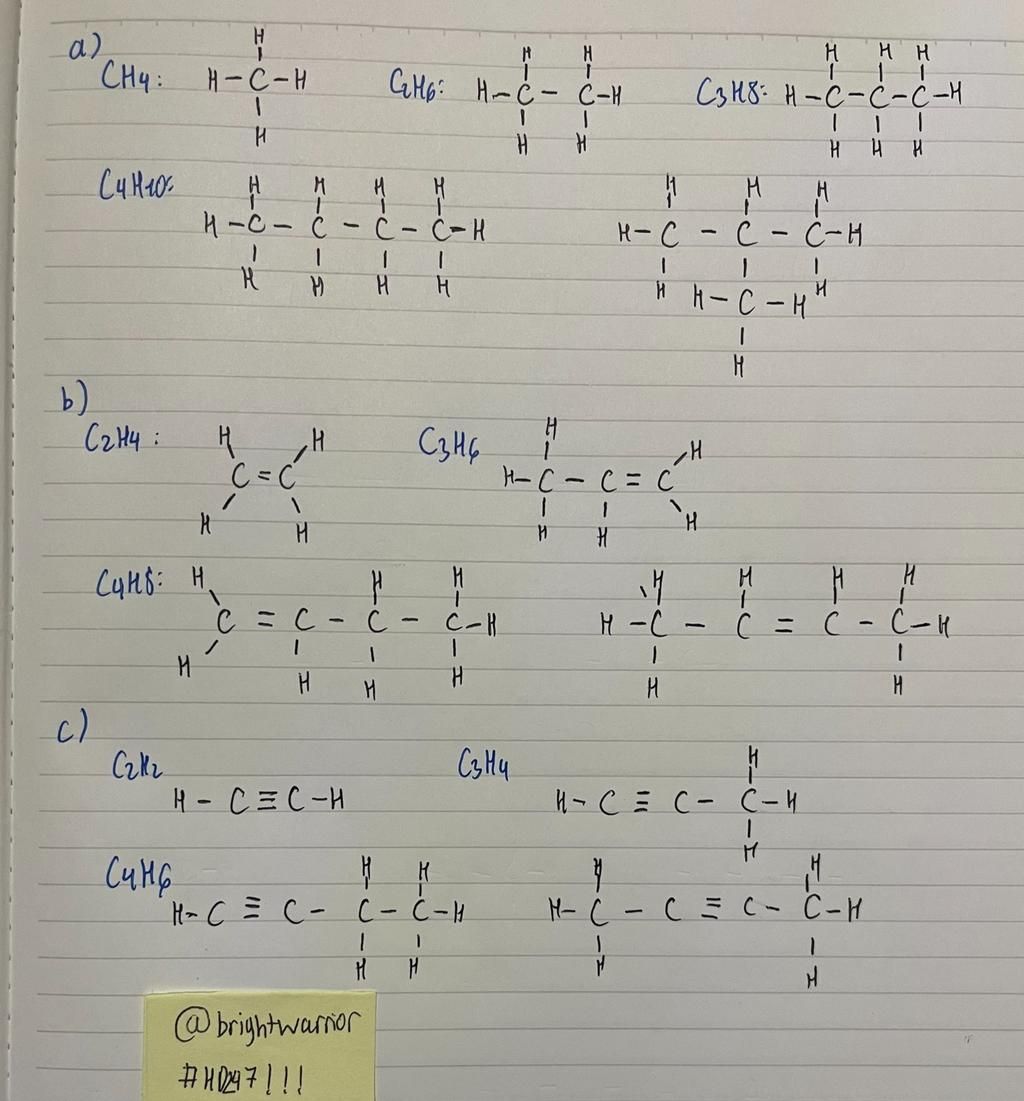 a)
H
CH4: H-C-H
H
H H
C2H6: H-C-C-H
H H
H H H
C3H8: H-C-C-C-H
H H H
C4H10:
H H H H
H-C-C-C-C-H
H H H H
H H H
H-C-C-C-H
H H
H-C-H
H
b)
C2H4:
H H
C=C
H H
C3H6
H H
H-C-C=C
H H H
C4H8:
H H H
C=C-C-C-H
H H H H
H H H H
H-C-C=C-C-H
H H
c)
C2H2
H-C≡C-H
C3H4
H
H-C≡C-C-H
H
C4H6
H H
H-C≡C-C-C-H
H H
H H
H-C-C≡C-C-H
H H
@brightwarrior
#HD247!!!